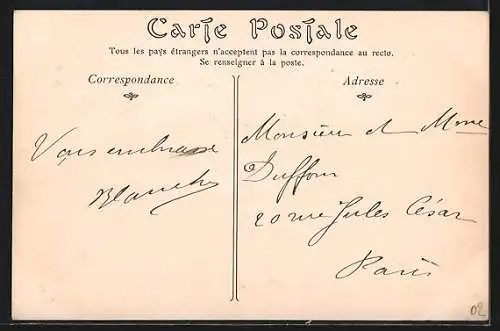 Carte Postale
Tous les pays étrangers n'acceptent pas la correspondance au recto.
Se renseigner à la poste.
Correspondance
Adresse
Vous embrasse
Blanche
Monsieur et Mme
Duffour
20 rue Jules César
Paris
02